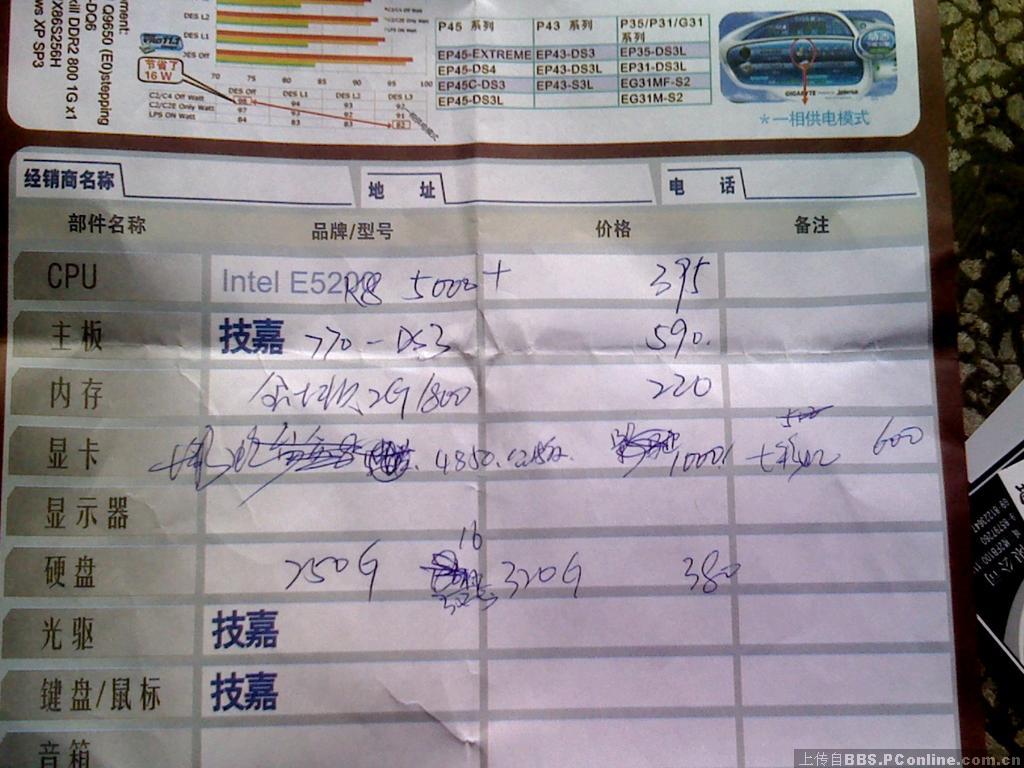 DES L2
C2/C2E Only Watt
DES L1
LPS ON Watt
DES Off
70 75 80 85 90 95 100
节省了
16 W
DES Off DES L1 DES L2 DES L3
C2/C4 Off Watt 98 94 93 92
C2/C2E Only Watt
LPS ON Watt 84 83 82
Q9650 (E0)stepping
DDR2 800 1G x1
X86S256H
XP SP3
P45 系列 P43 系列 P35/P31/G31
EP45-EXTREME EP43-DS3 EP35-DS3L
EP45-DS4 EP43-DS3L EP31-DS3L
EP45C-DS3 EP43-S3L EG31MF-S2
EP45-DS3L EG31M-S2
GIGABYTE
*一相供电模式
经销商名称 地 址 电 话
部件名称 品牌/型号 价格 备注
CPU Intel E5200 K8 5000+ 395
主板 技嘉 770-DS3 590.
内存 2G/800 220
显卡 4850. 1000. 600
显示器
硬盘 250G 16 320G 380
光驱 技嘉
键盘/鼠标 技嘉
音箱
上传自BBS.PConline.com.cn